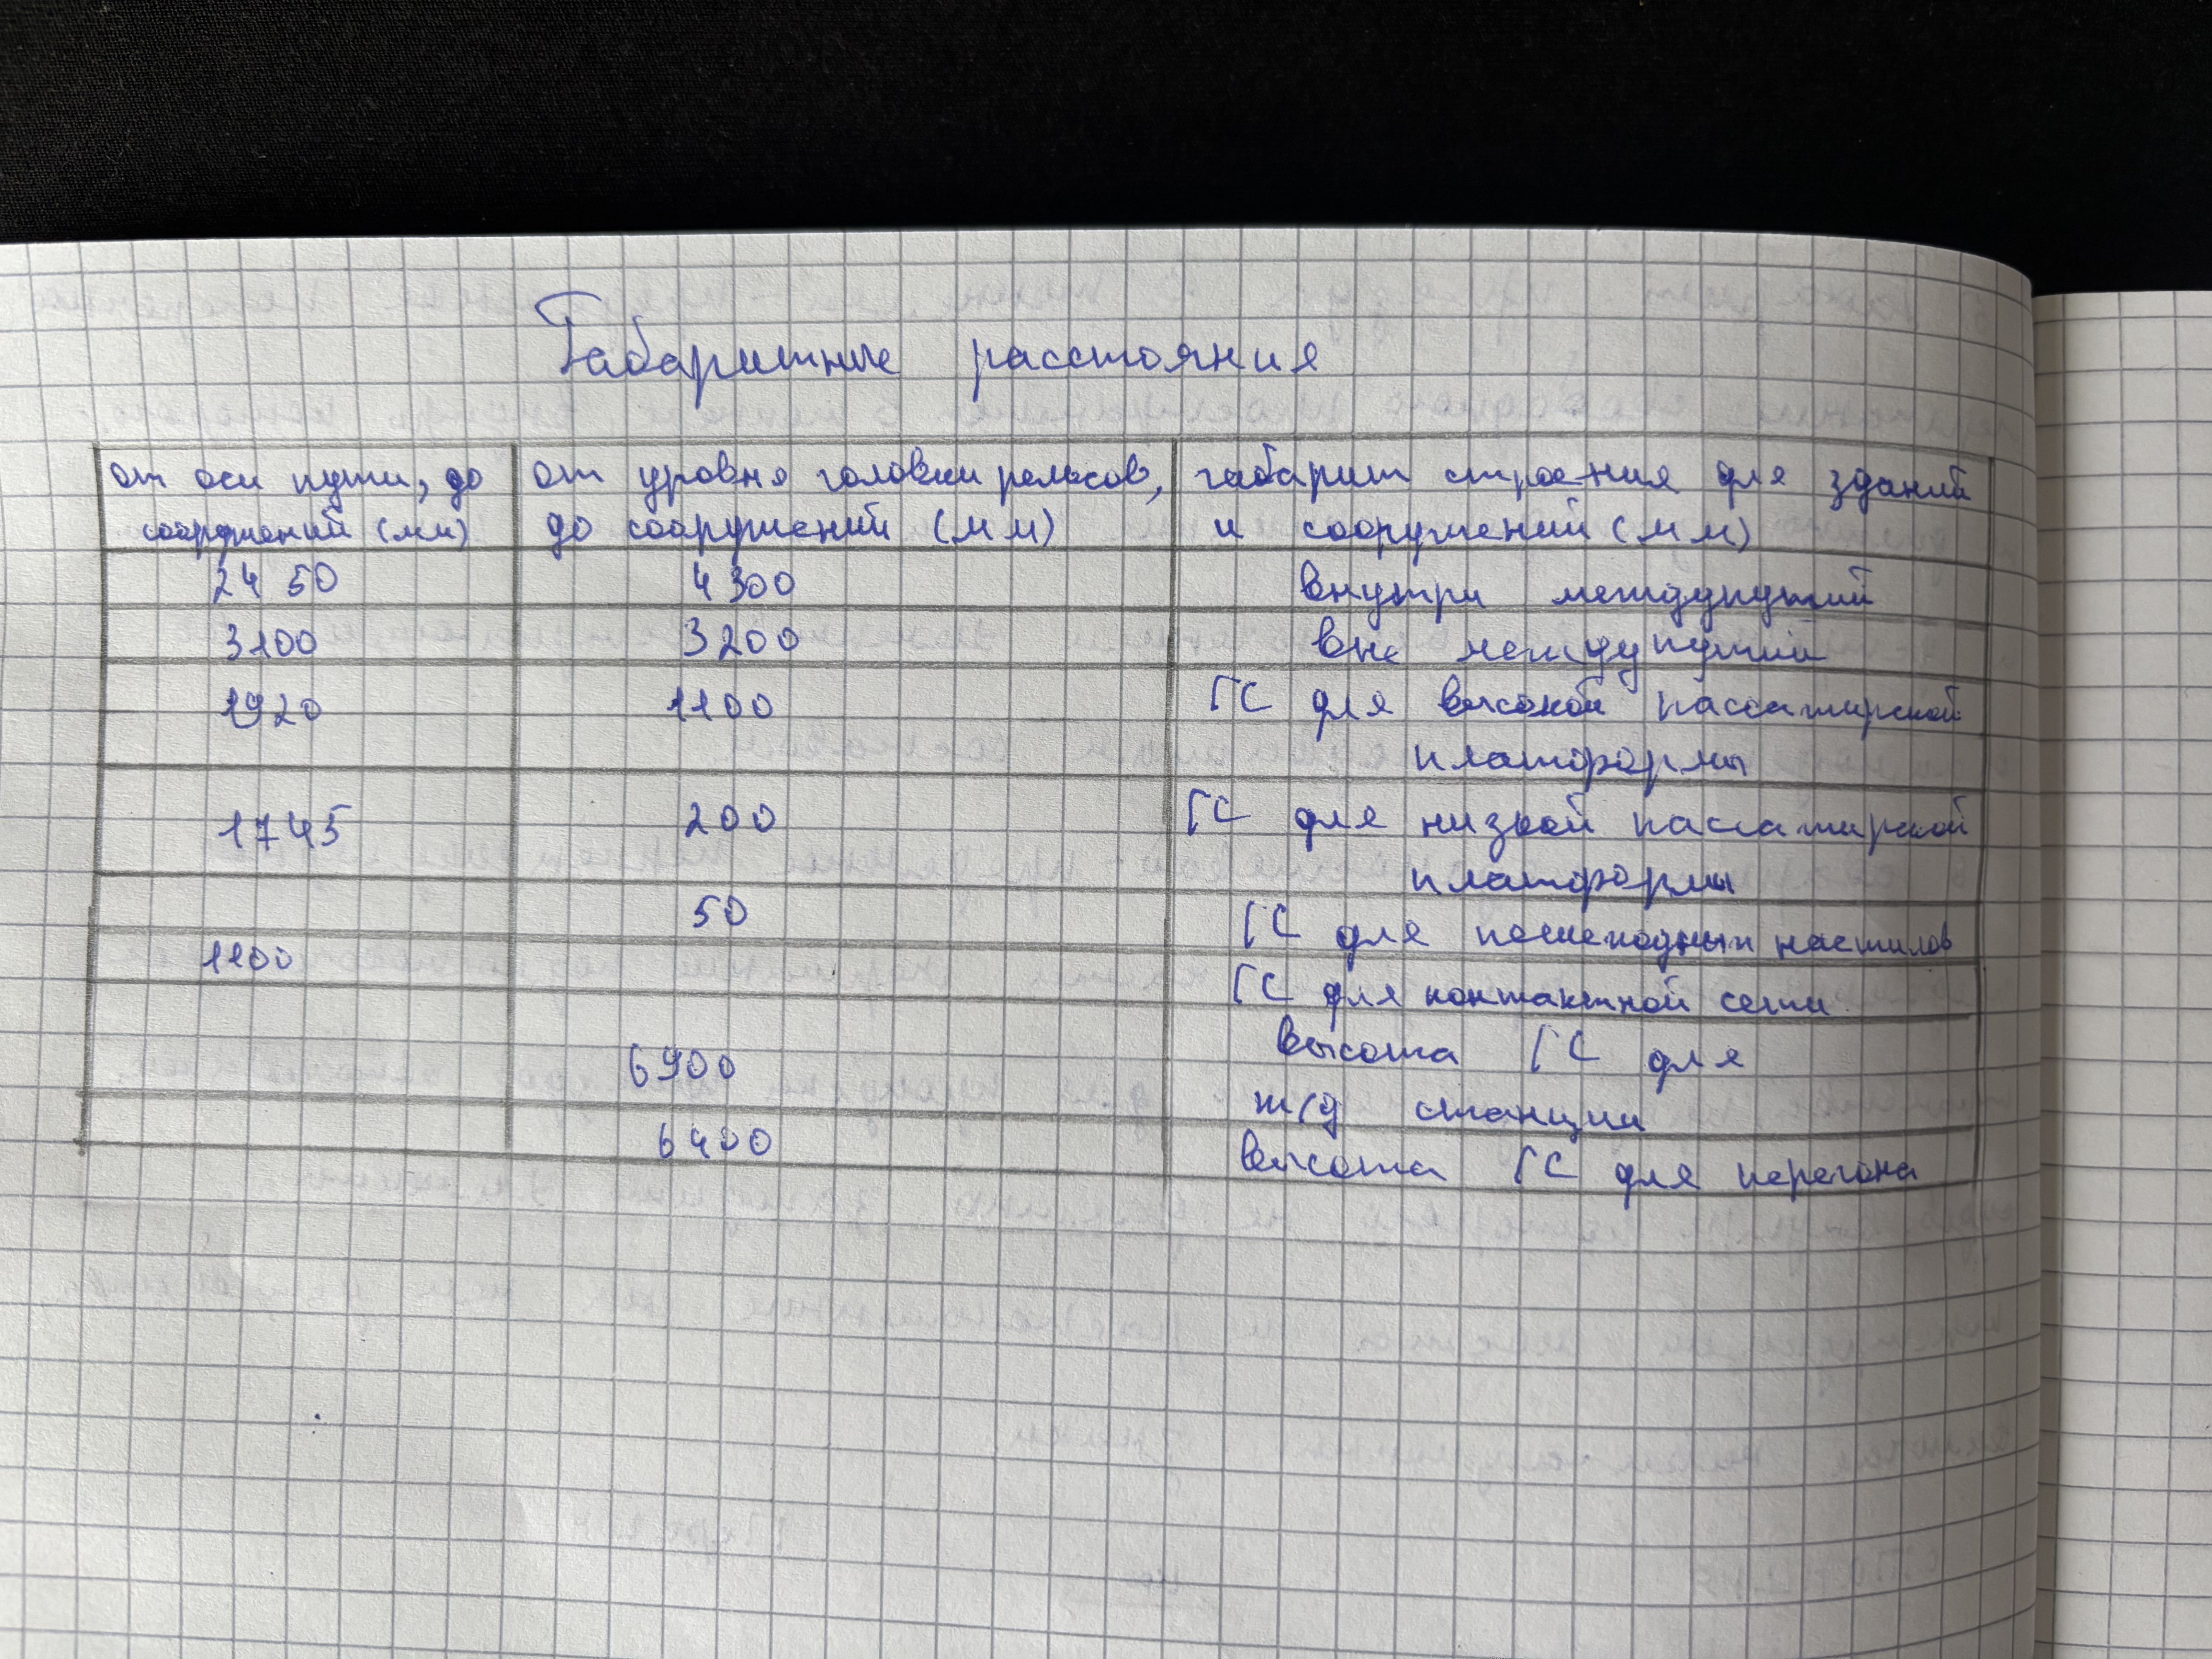 Габаритные расстояния
от оси пути, до от уровня головки рельсов, габарит строения для зданий
сооружений (мм) до сооружений (мм) и сооружений (мм)
2450 4300 внутри междупутий
3100 3200 вне междупутий
1920 1100 ГС для высокой пассажирской
платформы
1745 200 ГС для низкой пассажирской
платформы
50 ГС для пешеходных настилов
1100 ГС для контактной сети
6900 высота ГС для
ж/д станции
6400 высота ГС для перегона